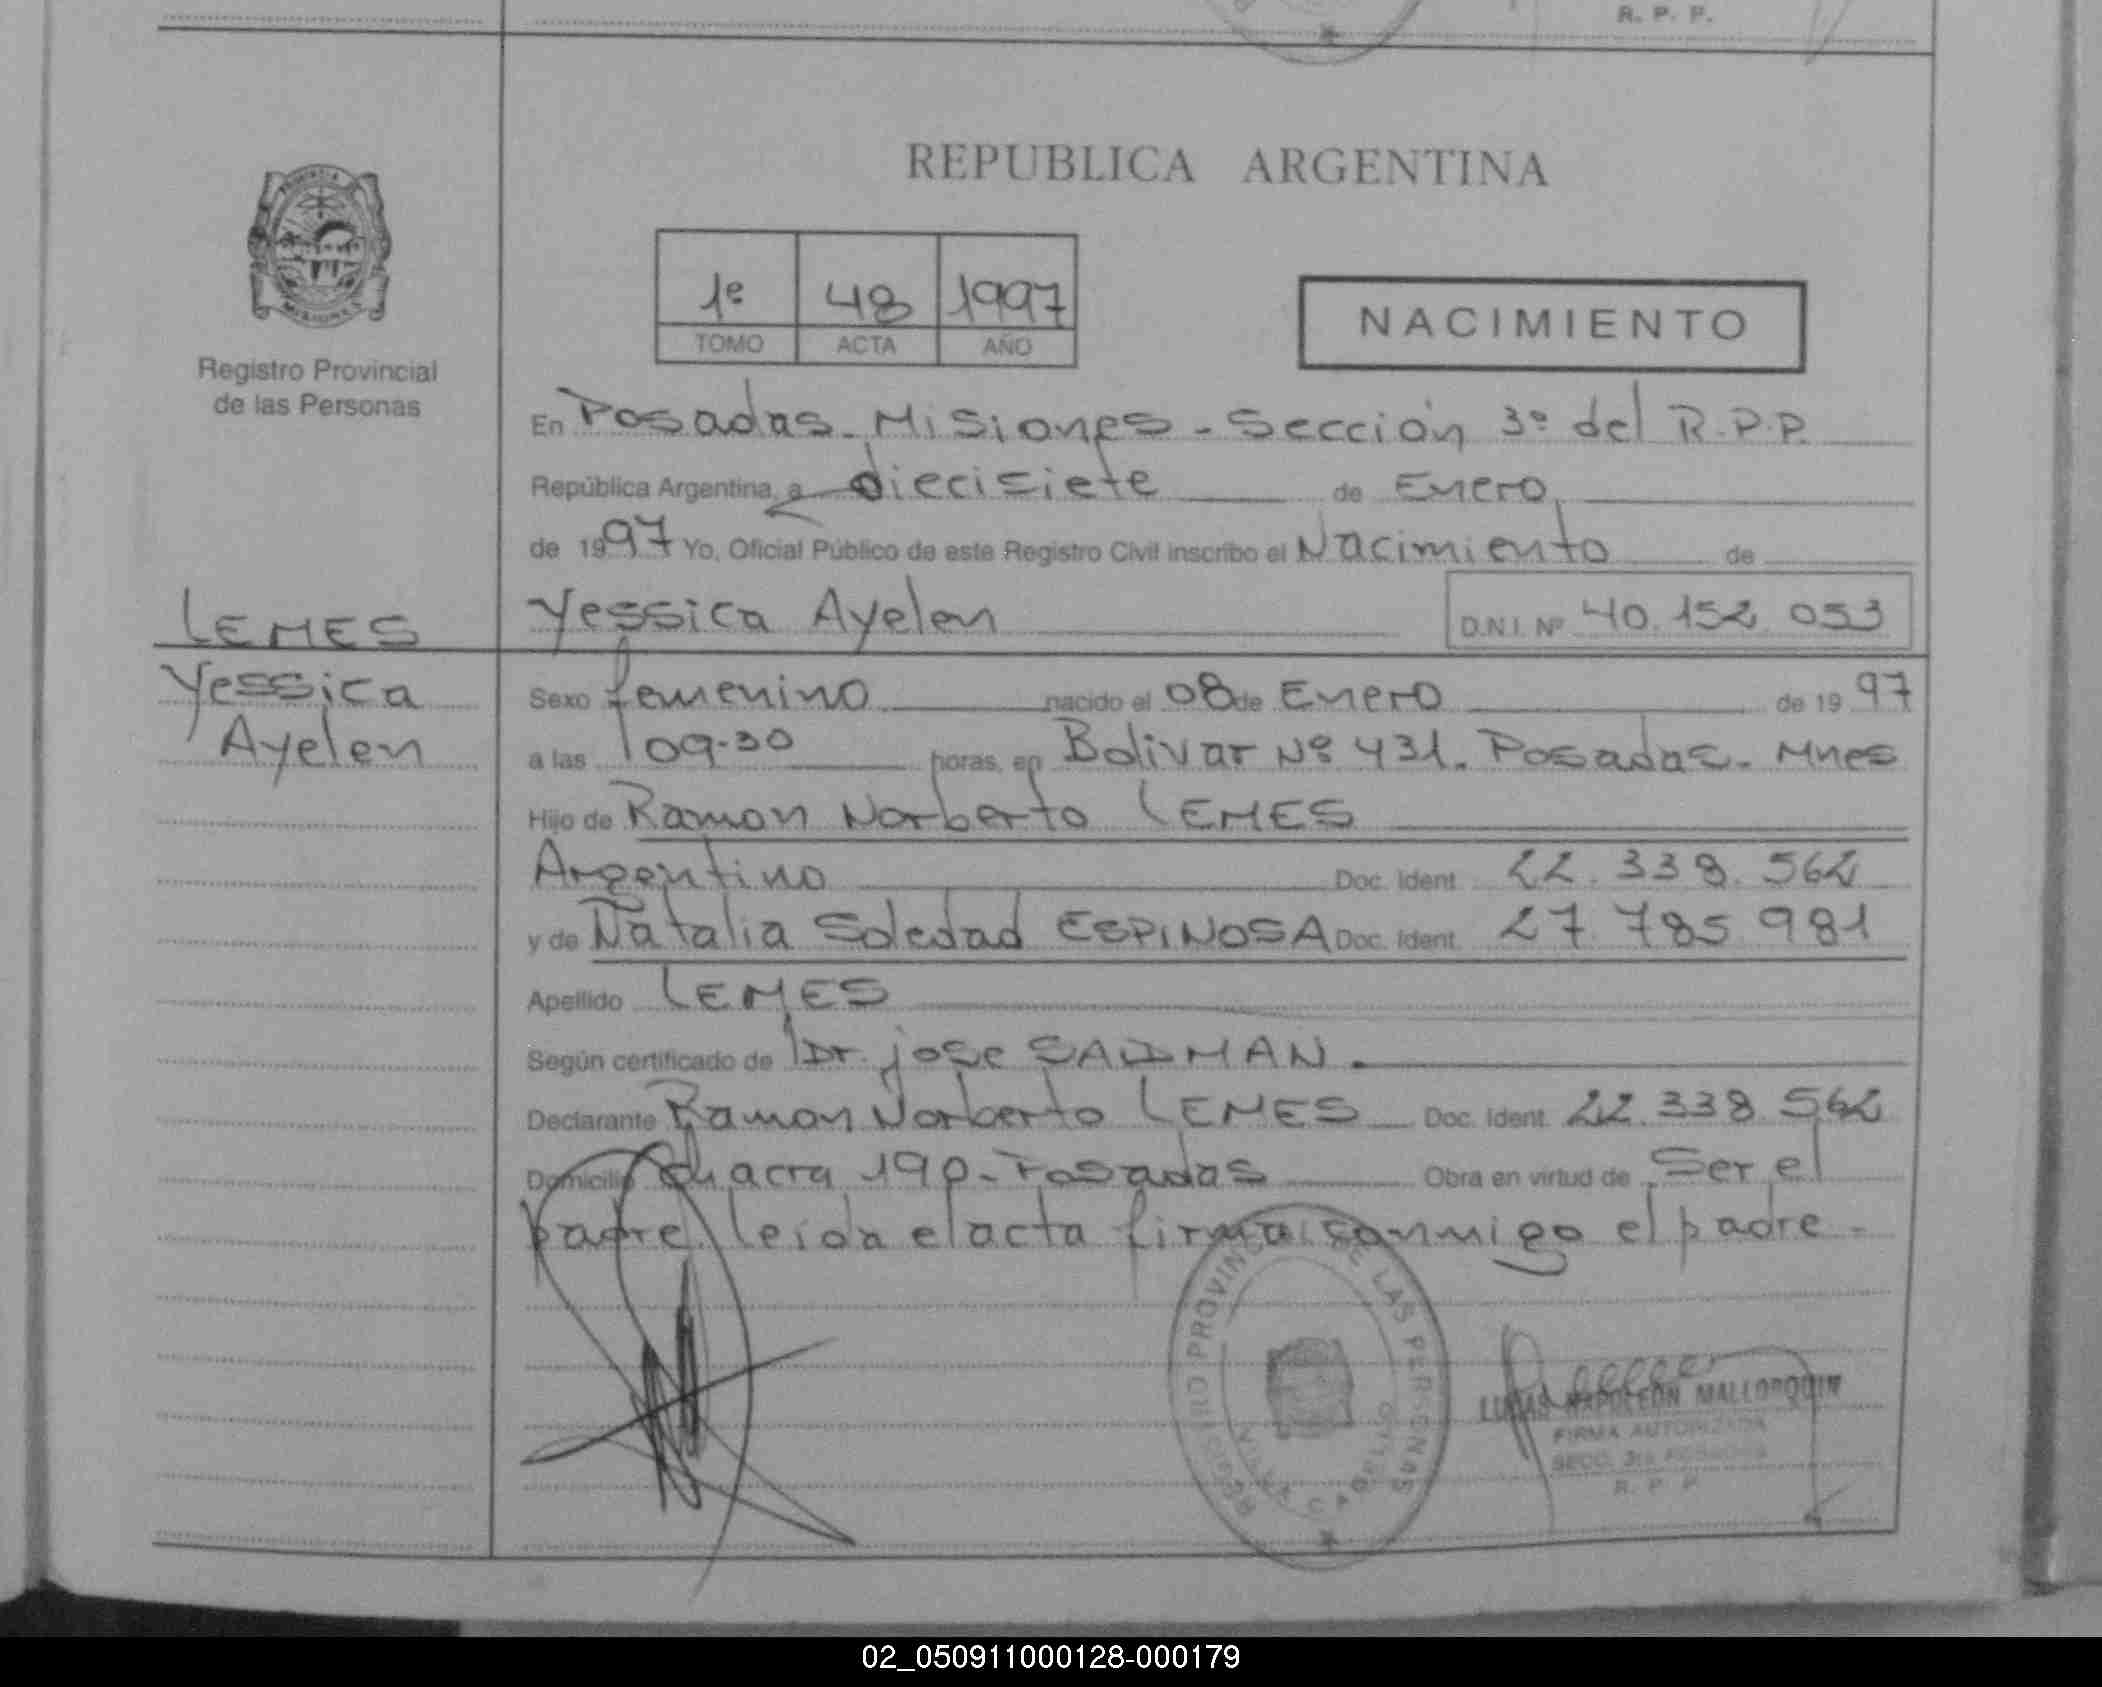 R. P. P.
REPUBLICA ARGENTINA
PROVINCIA
MISIONES
Registro Provincial
de las Personas
1º 48 1997
TOMO ACTA AÑO
NACIMIENTO
En Posadas - Misiones - Sección 3º del R.P.P.
República Argentina, a diecisiete de Enero
de 1997 Yo, Oficial Público de este Registro Civil inscribo el Nacimiento de
LEMES
Yessica Ayelen D.N.I. Nº 40.152.053
Yessica
Ayelen
Sexo femenino nacido el 08 de Enero de 1997
a las 09.30 horas, en Bolivar Nº 431. Posadas - Mnes
Hijo de Ramon Norberto LEMES
Argentino Doc. Ident. 22.338.562
y de Natalia Soledad ESPINOSA Doc. Ident. 27.785.981
Apellido LEMES
Según certificado de Dr. jose SADMAN.
Declarante Ramon Norberto LEMES Doc. Ident. 22.338.562
Domicilio chacra 190 - Posadas Obra en virtud de Ser el
padre. leída el acta firma conmigo el padre -
REGISTRO PROVINC DE LAS PERSONAS
LUCAS NAPOLEON MALLORQUIN
FIRMA AUTORIZADA
SECC. 3ra POSADAS
R. P. P.
02_050911000128-000179